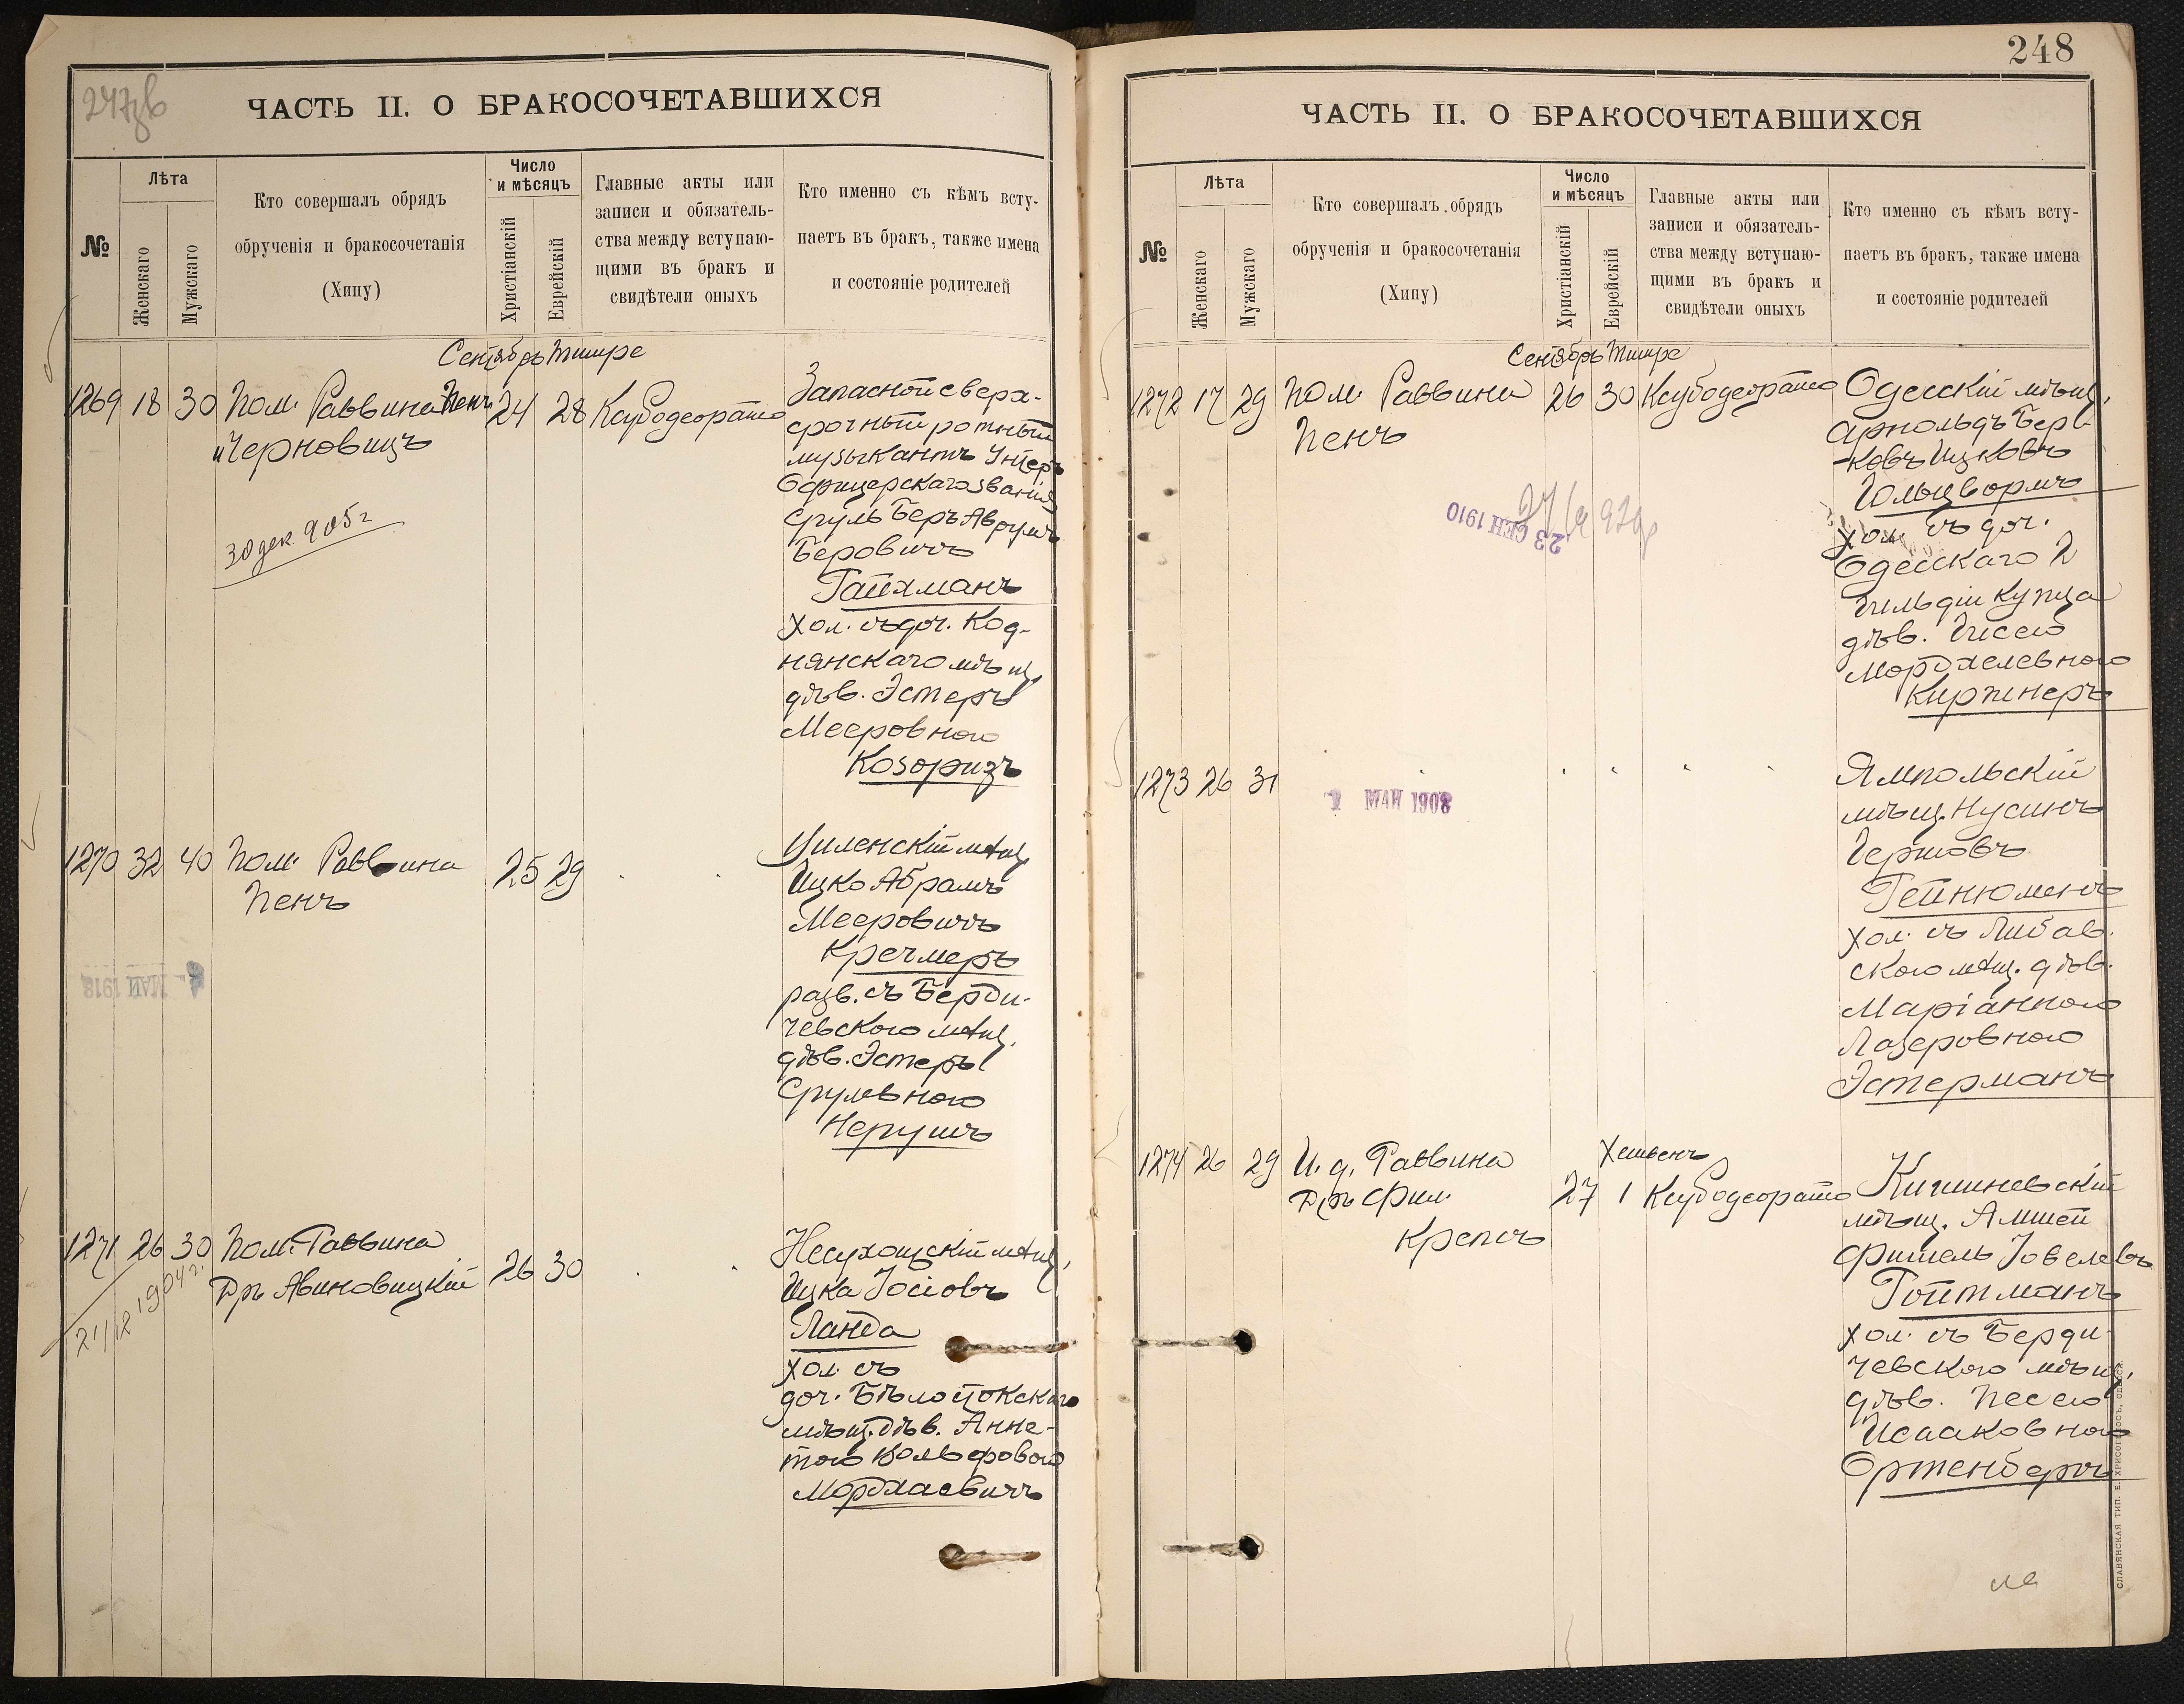 247об
ЧАСТЬ II. О БРАКОСОЧЕТАВШИХСЯ
№
Лѣта
Женскаго
Мужскаго
Кто совершалъ обрядъ
обрученія и бракосочетанія
(Хипу)
Число
и мѣсяцъ
Христіанскій
Еврейскій
Главные акты или
записи и обязатель-
ства между вступаю-
щими въ бракъ и
свидѣтели оныхъ
Кто именно съ кѣмъ всту-
паетъ въ бракъ, также имена
и состояніе родителей
Сентябрь Тишре
1269 18 30 Пом. Раввина Пенъ
и Черновицъ
24 28 Ксубодеорато
30 дек. 905 г
Запасной сверх-
срочный ротный
музыкантъ Унтеръ
Офицерскаго званія
Сруль Беръ Аврумъ
Беровичъ
Гайхманъ
хол. съ доч. Код-
нянскаго мѣщ.
дѣв. Эстеръ
Мееровною
Козоризъ
1270 32 40 Пом. Раввина
Пенъ
25 29
МАЙ 1918
Виленскій мѣщ.
Ицко Абрамъ
Мееровичъ
Кречмеръ
разв. съ Берди-
чевскою мѣщ.
дѣв. Эстеръ
Срулевною
Нерушъ
1271 26 30 Пом. Раввина
Дръ Авиновицкій
26 30
21/12 1904 г.
Несухоцскій мѣщ.
Ицка Іосіовъ
Ланда
хол. съ
доч. Бѣлостокскаго
мѣщ. дѣв. Анне-
тою Вольфовою
Мордхаевичъ
248
ЧАСТЬ II. О БРАКОСОЧЕТАВШИХСЯ
№
Лѣта
Женскаго
Мужскаго
Кто совершалъ обрядъ
обрученія и бракосочетанія
(Хипу)
Число
и мѣсяцъ
Христіанскій
Еврейскій
Главные акты или
записи и обязатель-
ства между вступаю-
щими въ бракъ и
свидѣтели оныхъ
Кто именно съ кѣмъ всту-
паетъ въ бракъ, также имена
и состояніе родителей
Сентябрь Тишре
1272 17 29 Пом. Раввина
Пенъ
26 30 Ксубодеорато
23 СЕН 1910
Одесскій мѣщ.
Арнольдъ Бер-
ковъ Ицковъ
Гольцвормъ
хол. съ доч.
Одесскаго 2
Гильдіи купца
дѣв. Гисею
Мордхелевною
Киржнеръ
1273 26 31
МАЙ 1908
Ямпольскій
мѣщ. Нусинъ
Гершовъ
Гейнюменъ
хол. съ Либав-
скою мѣщ. дѣв.
Маріанною
Лазеровною
Эстерманъ
1274 26 29 И. д. Раввина
Дръ Фил.
Крепсъ
Хешвенъ
27 1 Ксубодеорато
Кишиневскій
мѣщ. Амшей
Фишель Іовелевъ
Гойтманъ
хол. съ Берди-
чевскою мѣщ.
дѣв. Песею
Исааковною
Ортенбергъ
СЛАВЯНСКАЯ ТИП. Е. ХРИСОГЕЛОСЪ, ОДЕССА.